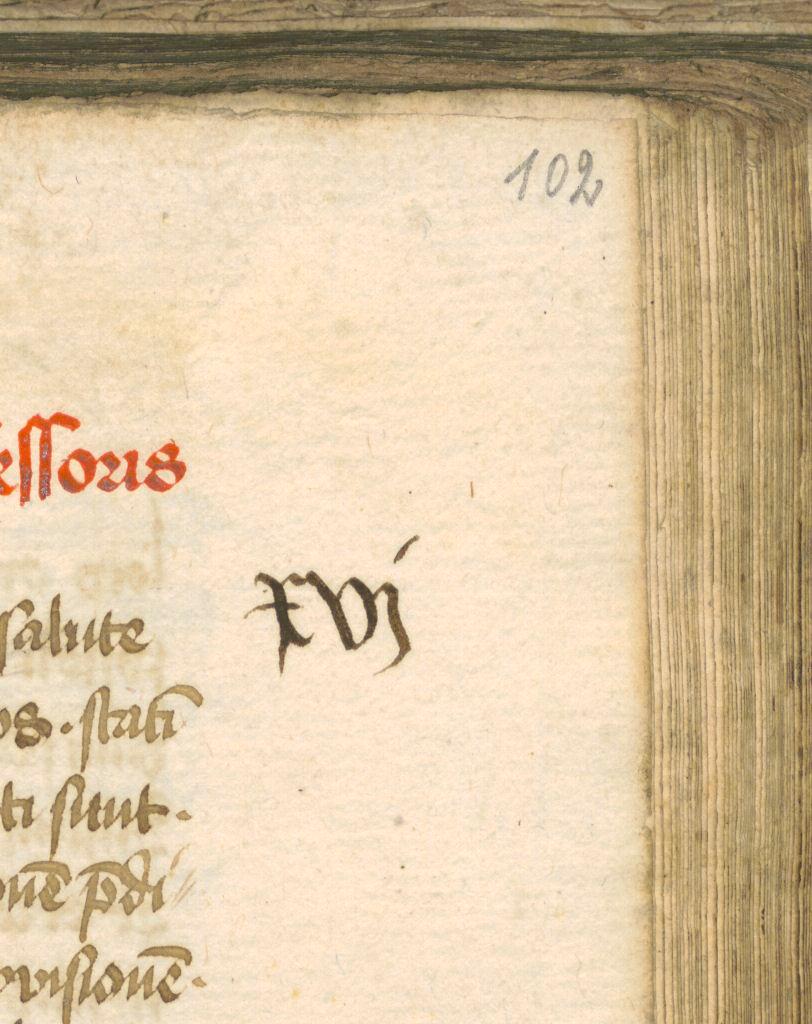 102
essoris
xvj
salute
os . stati̅
ti sunt .
oue̅ p̅di
ouisione̅ .